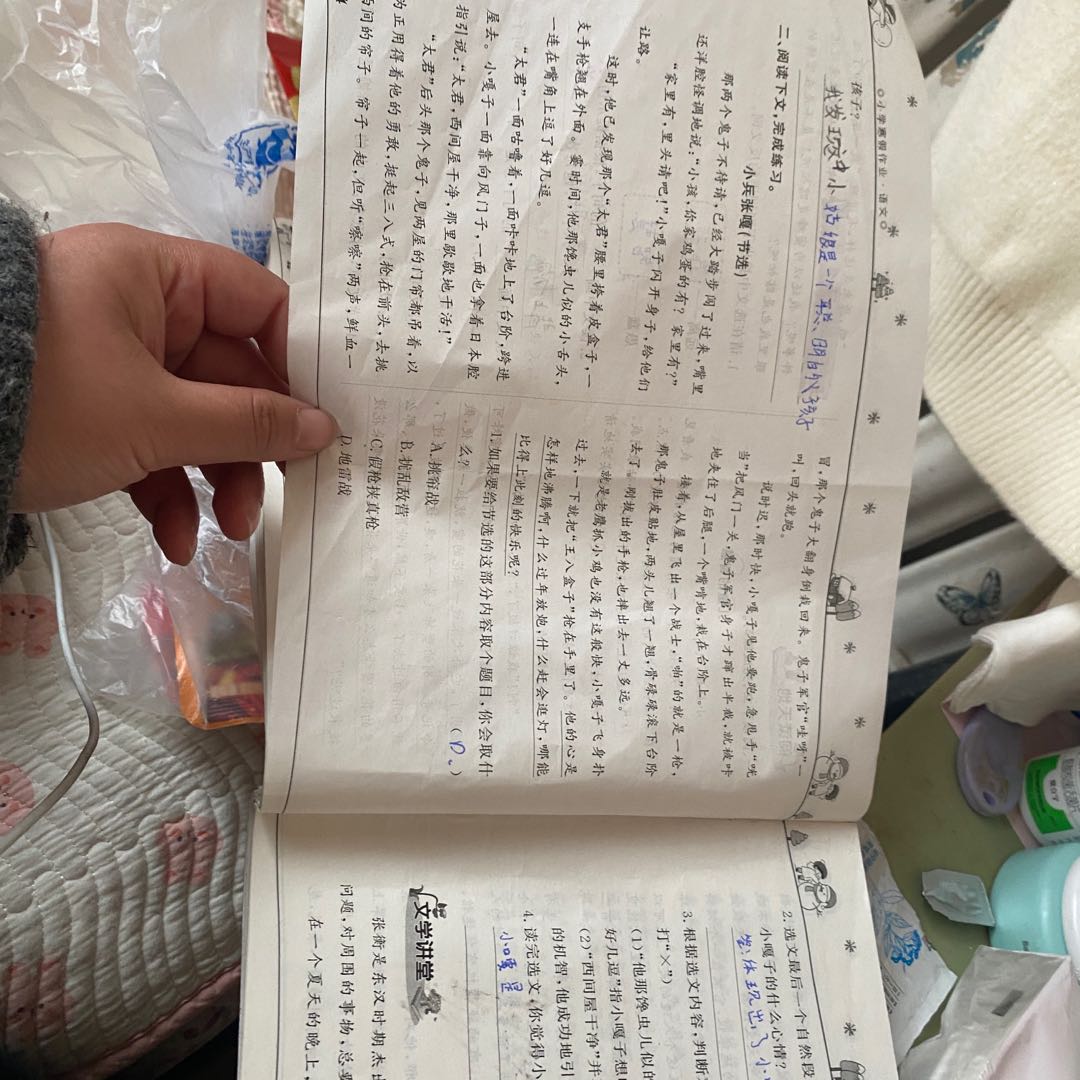 ○小学寒假作业·语文○
孩子?
我发现文中小姑娘是一个
孩子
二、阅读下文,完成练习。
小兵张嘎(节选)
那两个鬼子不待请,已经大踏步闯了过来,嘴里
还洋腔怪调地说:“小孩,你家鸡蛋的有?家里有?”
“家里有,里头请吧!”小嘎子闪开身子,给他们
让路。
这时,他已发现那个“太君”腰里挎着皮盒子,一
支手枪翘在外面。霎时间,他那馋虫儿似的小舌头,
一连在嘴角上逗了好几逗。
“太君”一面咕噜着,一面咔咔地上了台阶,跨进
屋去。小嘎子一面靠向风门子,一面也拿着日本腔
指引说:“太君,西间屋干净,那里歇歇地干活!”
“太君”后头那个鬼子,见两屋的门帘都吊着,以
为正用得着他的勇敢,挺起三八式,抢在前头,去挑
西间的帘子。帘子一起,但听“嚓嚓”两声,鲜血一
冒,那个鬼子大翻身倒栽回来。鬼子军官“哇呀”一
叫,回头就跑。
说时迟,那时快,小嘎子见他要跑,急甩手“咣
当”把风门一关,鬼子军官身子才蹿出半截,就被咔
地夹住了后腿,一个嘴啃地,栽在台阶上。
接着,从屋里飞出一个战士,“啪”的就是一枪,
那鬼子肚皮贴地,两头儿翘了一翘,骨碌碌滚下台阶
去了。刚拔出的手枪,也摔出去一丈多远。
就是老鹰抓小鸡也没有这般快,小嘎子飞身扑
过去,一下就把“王八盒子”抢在手里了。他的心是
怎样地沸腾啊,什么过年放炮,什么赶会逛灯,哪能
比得上此刻的快乐呢?
1. 如果要给节选的这部分内容取个题目,你会取什
么?
( D。)
A. 挑帘战
B. 扰乱敌营
C. 假枪换真枪
D. 地雷战
2. 选文最后一个自然段
小嘎子的什么心情?
答:体现出了小
3. 根据选文内容,判断
打“×”)
(1)“他那馋虫儿似的
好几逗”指小嘎子想
(2)“西间屋干净”并
的机智,他成功地引
4. 读完选文,你觉得小
小嘎是
文学讲堂
张衡是东汉时期杰出
问题,对周围的事物,总要
在一个夏天的晚上,